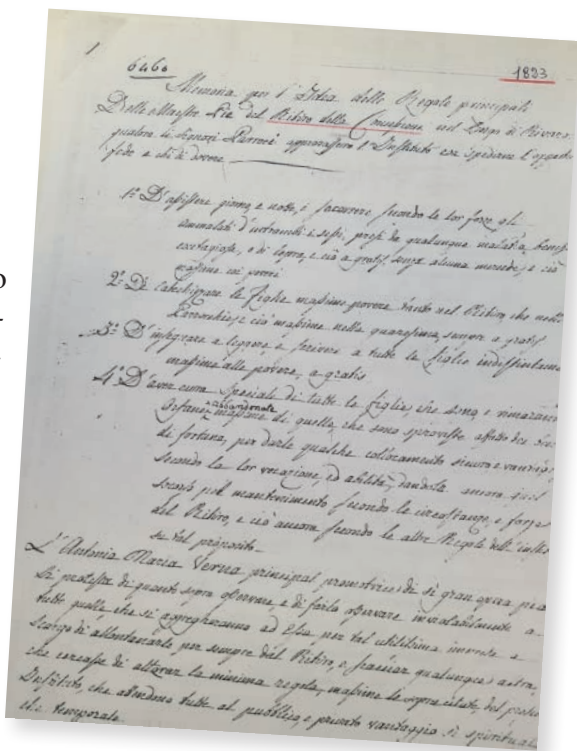 1
6460
1823
Memoria per l'Idea delle Regole principali
Delle Maestre Pie del Ritiro della Concezione nel Luogo di Rivara
qualora li Signori Parroci approvassero l'Instituto con spedirne l'opportuna
fede a chi di dovere
1º D'assistere giorno, e notte, e soccorrere secondo le lor forze gli
ammalati d'entrambi i sessi, presi da qualunque malatia, benché
contagiosa, o di lepra, e ciò a gratis senza alcuna mercede, e ciò
massime coi poveri
2º Di catechizzare le figlie massime povere tanto nel Ritiro, che nelle
Parrocchie, e ciò massime nella quaresima, sempre a gratis
3º D'insegnare a leggere, e scrivere a tutte le figlie indifferentemente
massime alle povere, a gratis
4º D'aver cura speciale di tutte le figlie, che sono, e rimarranno
abbandonate
Orfane, massime di quelle, che sono sprovviste affatto
di fortuna, per darle qualche collocamento sicuro e
secondo la lor vocazione, ed abilità, dandole ancora quel
pel mantenimento secondo le circostanze, e forze
del Ritiro, e ciò ancora secondo le altre Regole
su tal proposito
L'Antonia Maria Verna principal promotrice di sì gran opera pia
Si protesta di quanto sopra osservare, e di farlo osservare inviolabilmente a
tutte quelle che si aggregheranno ad Essa per tal
di allontanarle per sempre dal Ritiro, e qualunque altra,
che cercasse di alterar la minima regola, massime le sopra citate, del
Instituto, che tendono tutte al pubblico, e privato vantaggio sì spirituale
che temporale